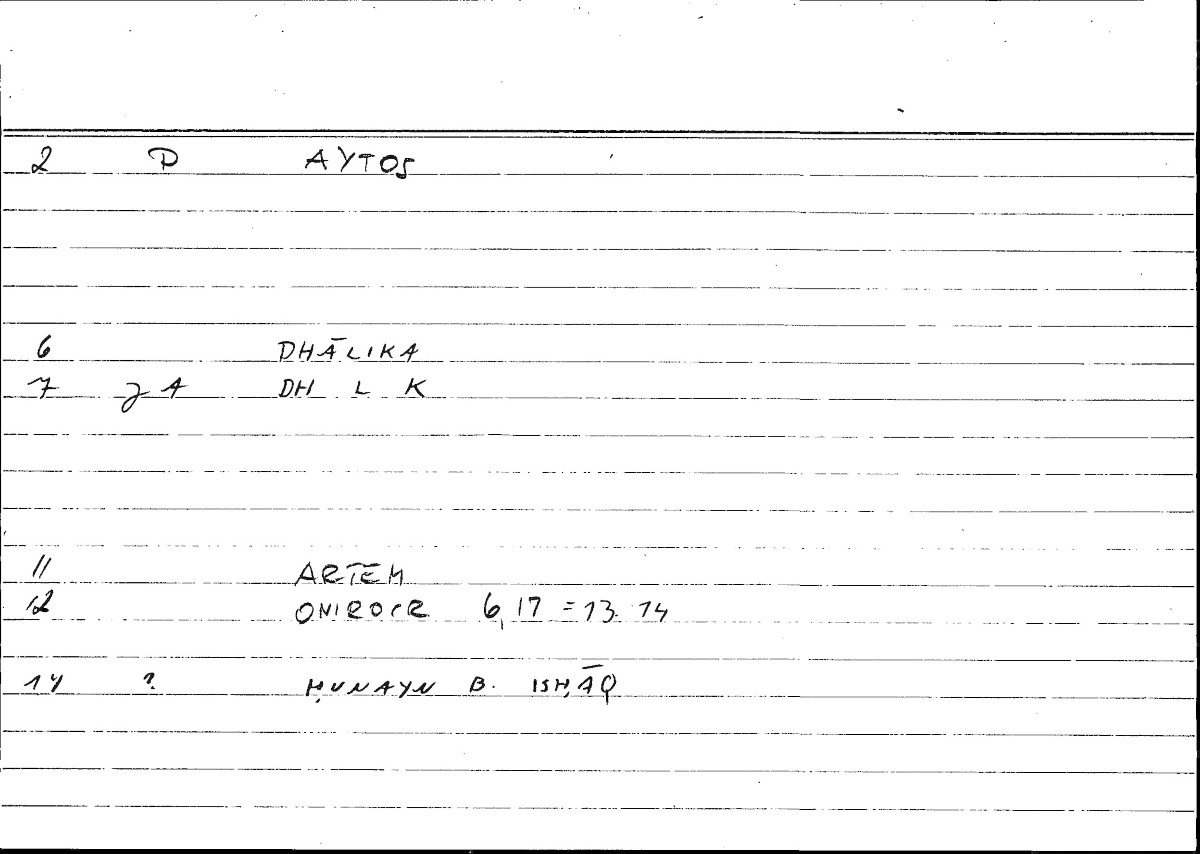 2 P AYTOS
6 DHĀLIKA
7 J A DH L K
11 ARTEM
12 ONIROCR 6,17 = 13.14
14 ? ḤUNAYN B. ISḤĀQ